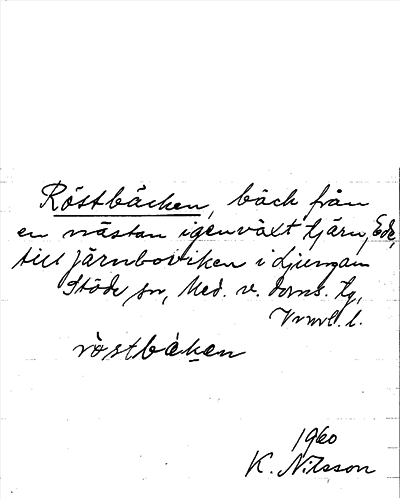 Röstbäcken, bäck från
en nästan igenväxt tjärn, Ede,
till Järnboviken i Ljungan
Stöde sn, Med. v. doms. tg,
Vnrl. l.
röstbäkan
1960
K. Nilsson